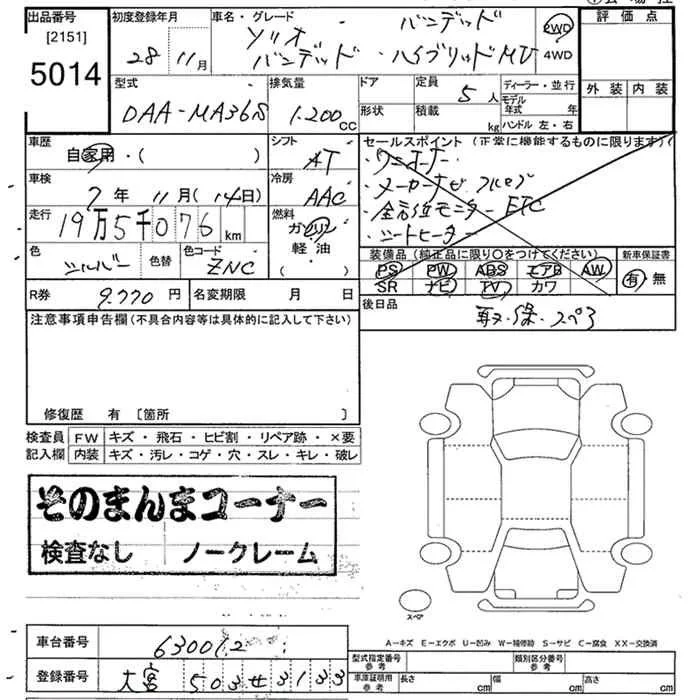 出品番号
[2151]
5014
初度登録年月
28 11月
車名・グレード
バンデッド
ソリオ
バンデッド・ハイブリッドMV
2WD
4WD
評価点
外装 内装
型式
DAA-MA36S
排気量
1.200cc
ドア
形状
定員
5人
積載
kg
ディーラー・並行
モデル年式 年
ハンドル 左・右
車歴
自家用・( )
シフト
AT
車検
7年11月(14日)
冷房
AAC
走行
19万5千076km
燃料
ガソリン
軽油
( )
色
シルバー
色替
色コード
ZNC
セールスポイント (正常に機能するものに限ります)
・ワンオーナー
・メーカーナビ フルセグ
・全方位モニター ETC
・シートヒーター
装備品 (純正品に限り○をつけてください)
PS PW ABS エアB AW
SR ナビ TV カワ
新車保証書
有・無
R券
9.770円
名変期限 月 日
後日品
取・保・スペア
注意事項申告欄(不具合内容等は具体的に記入して下さい)
修復歴 有 [箇所 ]
検査員記入欄
FW キズ・飛石・ヒビ割・リペア跡・×要
内装 キズ・汚レ・コゲ・穴・スレ・キレ・破レ
そのまんまコーナー
検査なし ノークレーム
スペア
A-キズ E-エクボ U-凹み W-補修跡 S-サビ C-腐食 XX-交換済
車台番号
630012
登録番号
大宮 503せ3133
型式指定番号
参考
類別区分番号
参考
車庫証明用
参考
長さ cm
幅 cm
高さ cm